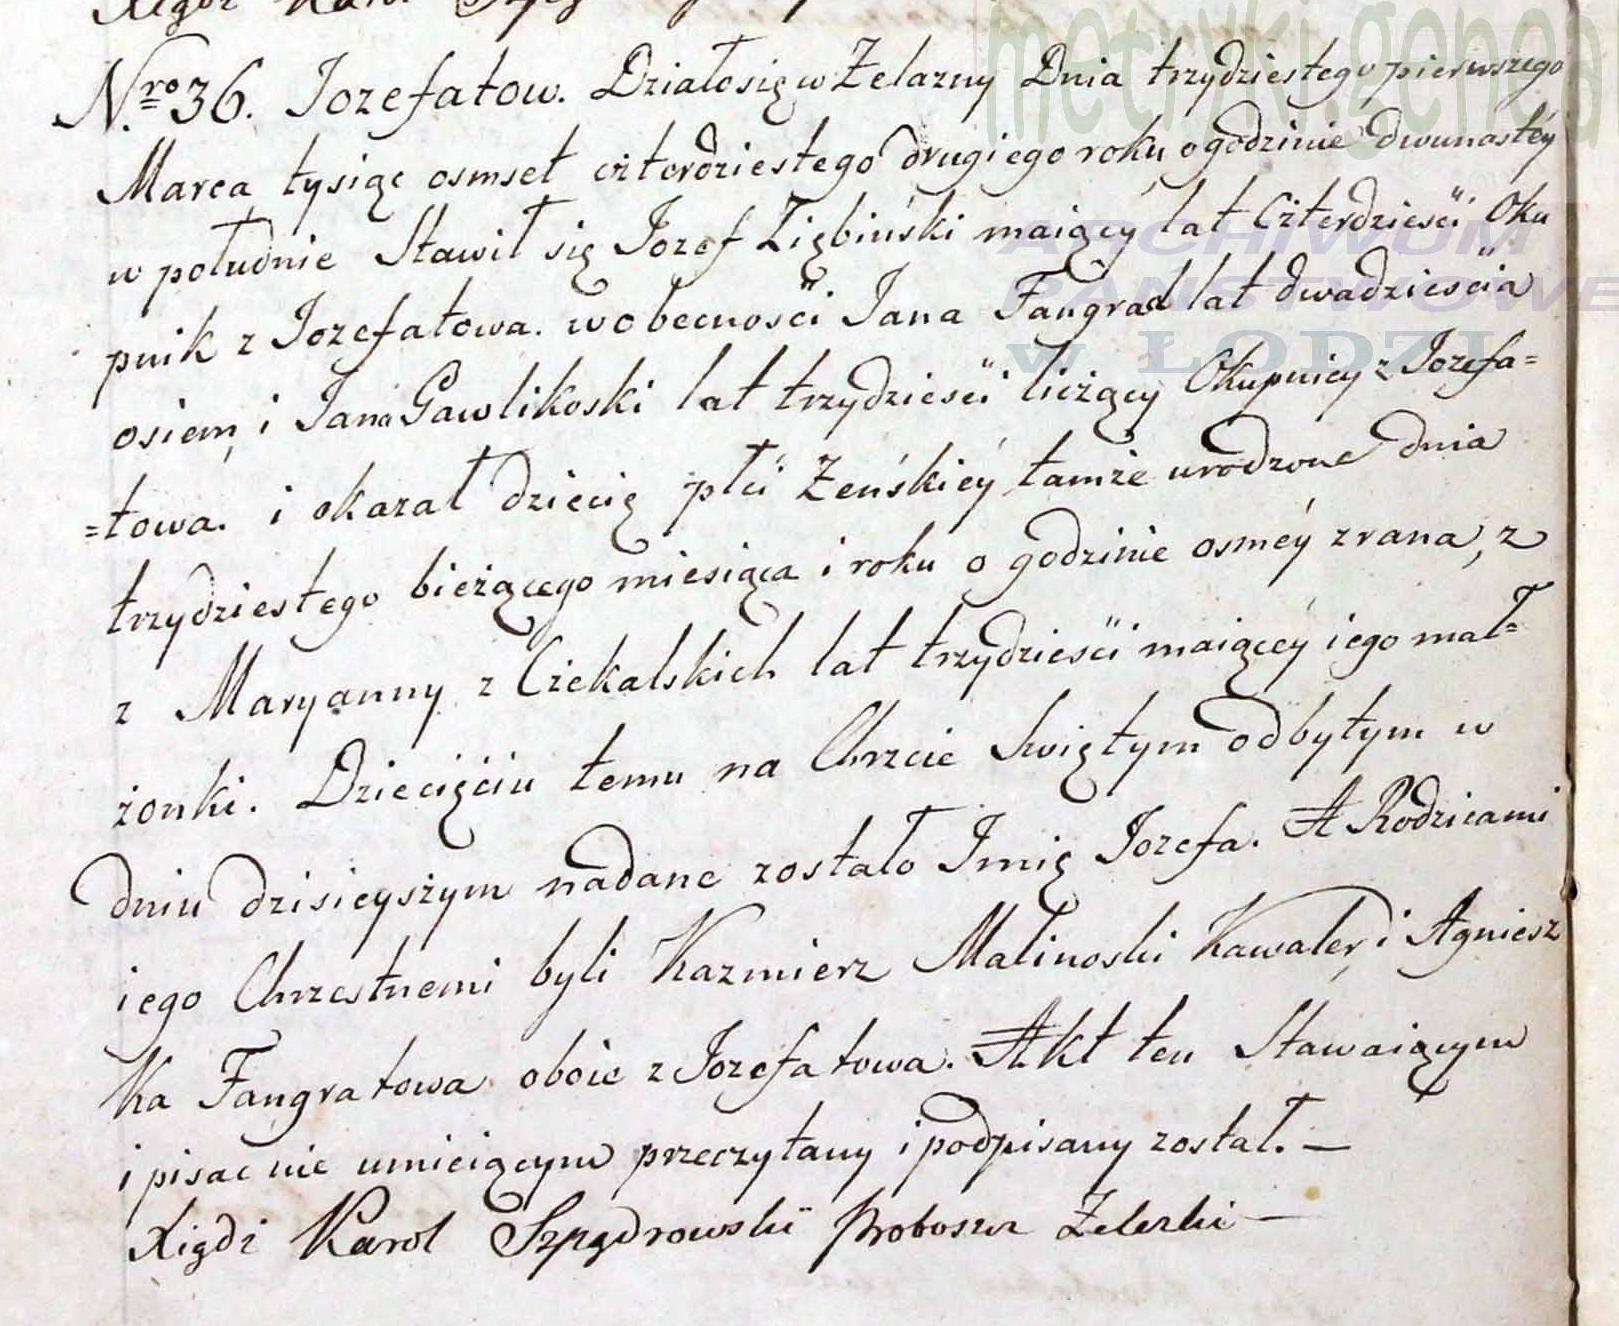 N.ro 36. Jozefatow. Działo się w Żelazny Dnia trzydziestego pierwszego
Marca tysiąc osmset czterdziestego drugiego roku, o godzinie dwunastéy
w południe Stawił się Jozef Ziębiński maiący lat Czterdzieści Oku
pnik z Jozefatowa. w obecności Jana Fangrad lat dwadzieścia
osiem, i Jana Gawlikoski lat trzydzieści liczący Okupnicy z Jozefa=
=towa. i okazał dziecię płci Żeńskiéy tamże urodzone dnia
trzydziestego bieżącego miesiąca i roku o godzinie osméy zrana, z
z Maryanny z Ciekalskich lat trzydzieści maiącéy iego mał=
żonki. Dziecięciu temu na Chrzcie Swiętym odbytym w
dniu dzisieyszym nadane zostało Imię Jozefa. A Rodzicami
iego Chrzestnemi byli Kazmierz Malinoski Kawaler, i Agniesz
Ka Fangratowa oboie z Jozefatowa. Akt ten Stawaiącym
i pisac nie umieiącym przeczytany i podpisany został. —
Xiądz Karol Szpądrowski Proboszcz Żelezki —
metryki.genea
ARCHIWUM
PAŃSTWOWE
w ŁODZI